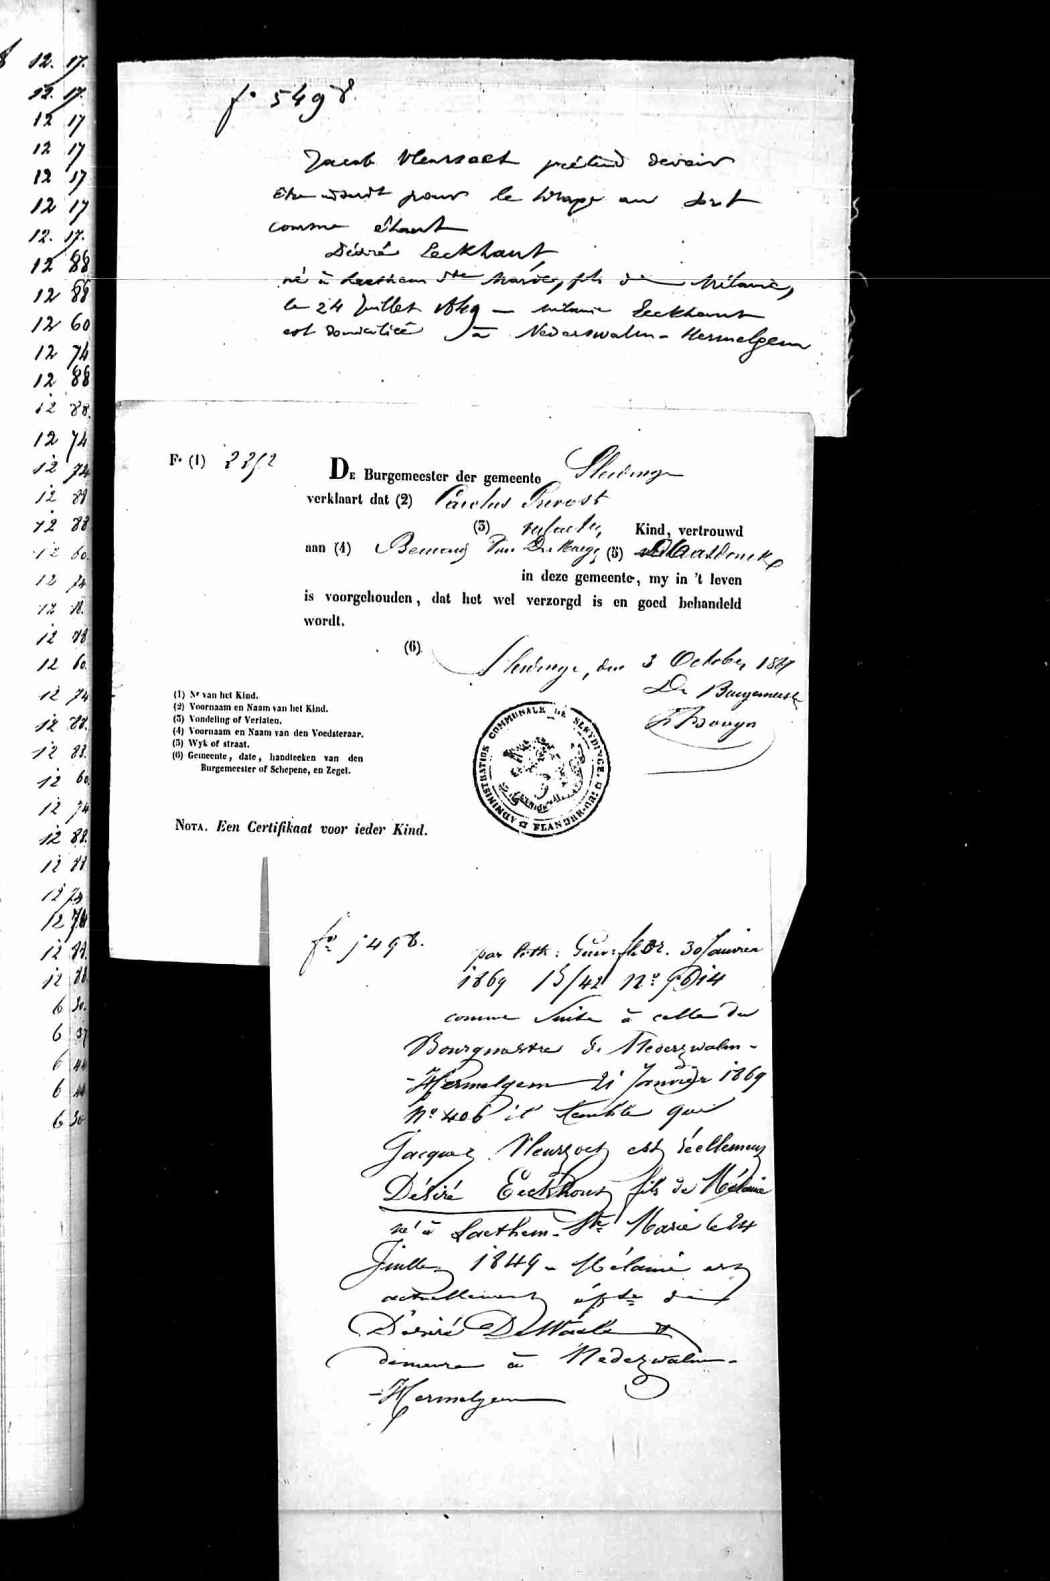 12. 17.
12. 17.
12 17
12 17
12 17
12 17
12. 17.
12 88
12 88
12 60
12 74
12 88
12 88.
12 74
12 74
12 88
12 88
12 60.
12 74
12 88
12 60.
12 74
12 88.
12 88.
12 60
12 74
12 88.
12 88
12 74
12 88.
12 88
6 30.
6 37
6 44
6 44
6 30
fo 5498.
Jacob Vleurzoet prétend devoir
être inscrit pour le tirage au sort
comme étant
Désiré Eeckhaut,
né à Laethem Ste Marie, fils de Mélanie,
le 24 Juillet 1849 — Mélanie Eeckhaut
est domiciliée à Nederswalm-Hermelgem
F. (1)
DE Burgemeester der gemeente Sleidinge
verklaart dat (2) Carolus Prevost
(3) Kind, vertrouwd
aan (4) (5)
in deze gemeente, my in 't leven
is voorgehouden, dat het wel verzorgd is en goed behandeld
wordt.
(6)
Sleidinge, den 3 October
De Burgemeester
(1) Nr van het Kind.
(2) Voornaam en Naam van het Kind.
(3) Vondeling of Verlaten.
(4) Voornaam en Naam van den Voedsteraar.
(5) Wyk of straat.
(6) Gemeente, date, handteeken van den
Burgemeester of Schepene, en Zegel.
ADMINISTRATION COMMUNALE DE SLEYDINGE. FLANDER-OR:
NOTA. Een Certifikaat voor ieder Kind.
fo 5498.
par 30 Janvier
1869 15/42 No
comme suite à celle du
Bourgmestre de Nederzwalm-
-Hermelgem 21 Janvier 1869
No 406 il semble que
Jacques Vleurzoet est réellement
Désiré Eeckhout fils de Mélanie
né à Laethem-Ste Marie le 24
Juillet 1849 - Mélanie est
actuellement épse de
Désiré DeWaele &
demeure à Nederzwalm-
-Hermelgem